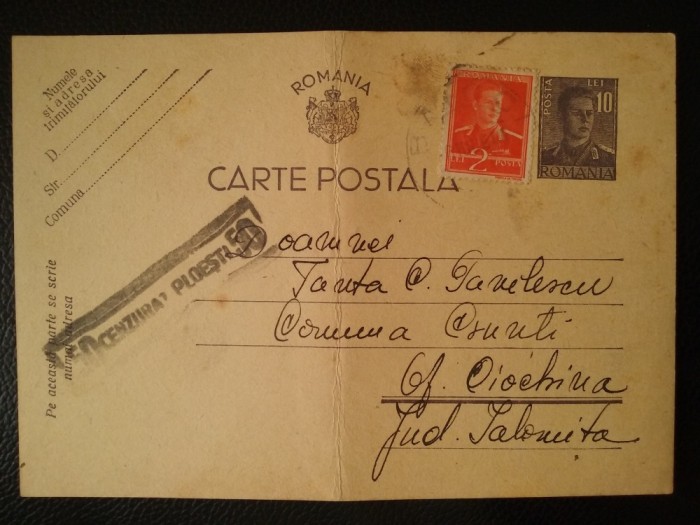 Numele
și adresa
trimițătorului
D.
Str.
Comuna
ROMANIA
CARTE POSTALA
ROMANIA
LEI 2 POSTA
POSTA LEI
10
ROMANIA
CENZURAT PLOEȘTI
Pe această parte se scrie
numai adresa
Doamnei
Tanta C. Pavelescu
Comuna
Of. Ciochina
Jud. Ialomita